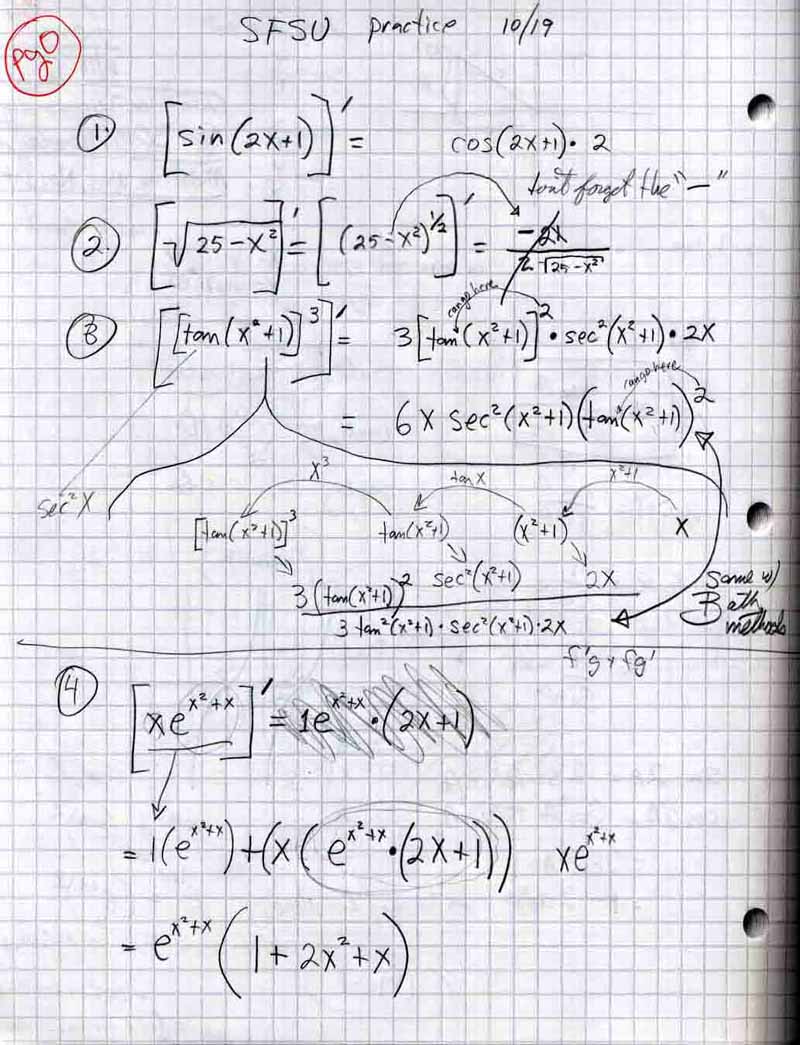 SFSU practice 10/19
pg 0
1. [sin(2x+1)]' = cos(2x+1)· 2
don't forget the "−"
2. [√25−x²]' = [(25−x²)^½]' = −2x / 2√25−x²
can go here
3 [[tan(x²+1)]³]' = 3[tan(x²+1)]² · sec²(x²+1) · 2x
can go here
= 6x sec²(x²+1)(tan(x²+1))²
x³ tan x x²+1
sec²x
[tan(x²+1)]³ tan(x²+1) (x²+1) x
3(tan(x²+1))² sec²(x²+1) 2x
3 tan²(x²+1) · sec²(x²+1) · 2x
Same w/
Both
methods
f'g + fg'
4 [xe^(x²+x)]' = 1e^(x²+x) · (2x+1)
= 1(e^(x²+x)) + (x(e^(x²+x) · (2x+1))) xe^(x²+x)
= e^(x²+x) (1 + 2x² + x)